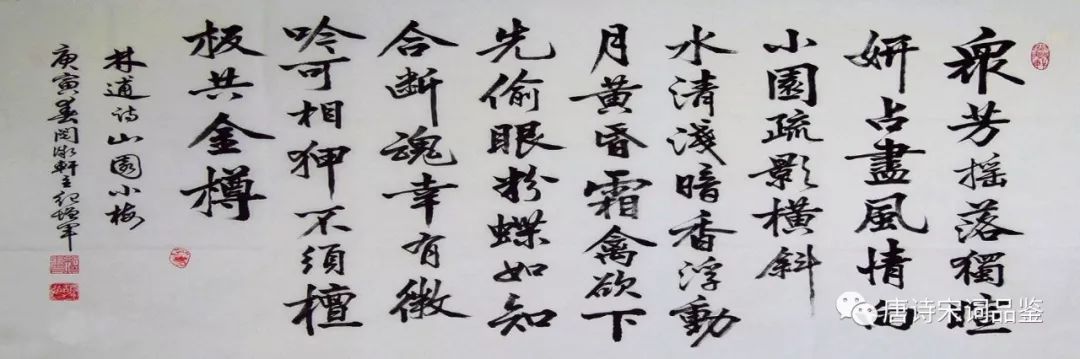 衆芳摇落獨暄
妍占盡風情向
小園疏影橫斜
水清淺暗香浮動
月黄昏霜禽欲下
先偷眼粉蝶如知
合断魂幸有微
吟可相狎不須檀
板共金樽
林逋诗山園小梅
庚寅春軒主
唐诗宋词品鉴